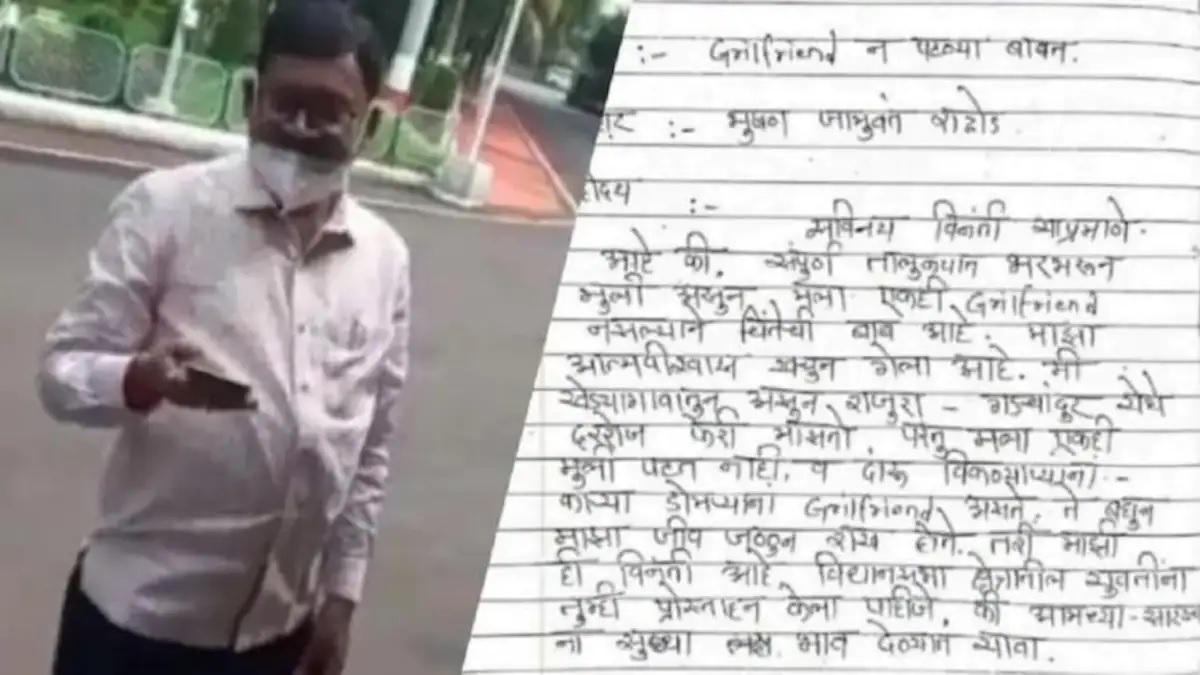 :- Grilfriend न पटण्या बाबत.
:- भुषण जांबुवंत राठोड
होदय :-
सविनय विनंती याप्रमाणे
आहे की, संपुर्ण तालुक्यात भरभरून
मुली असुन मला एकही Grilfriend
नसल्याने चिंतेची बाब आहे. माझा
आत्मवीश्वास खचुन गेला आहे. मी
खेड्यागावातुन असुन राजुरा - गडचांदुर येथे
दररोज फेरी मारतो, परंतु मला एकही
मुली पटत नाही. व दारू विकणाऱ्याला -
काऱ्या डोमळ्यांना Grilfriend असते, ते बघुन
माझा जीव जळुन राख होते. तरी माझी
ही विनंती आहे, विधानसभा क्षेत्रातील युवतींना
तुम्ही प्रोत्साहन केला पाहीजे, की आमच्या-सारख्
ना सुध्दा भाव देण्यात यावा.